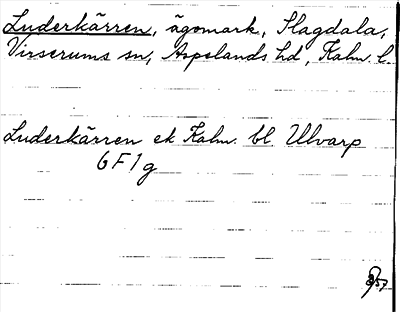 Luderkärren, ägomark, Slagdala,
Virserums sn, Aspelands hd, Kalm. l.
Luderkärren ek Kalm. bl Ulvarp
6 F 1 g